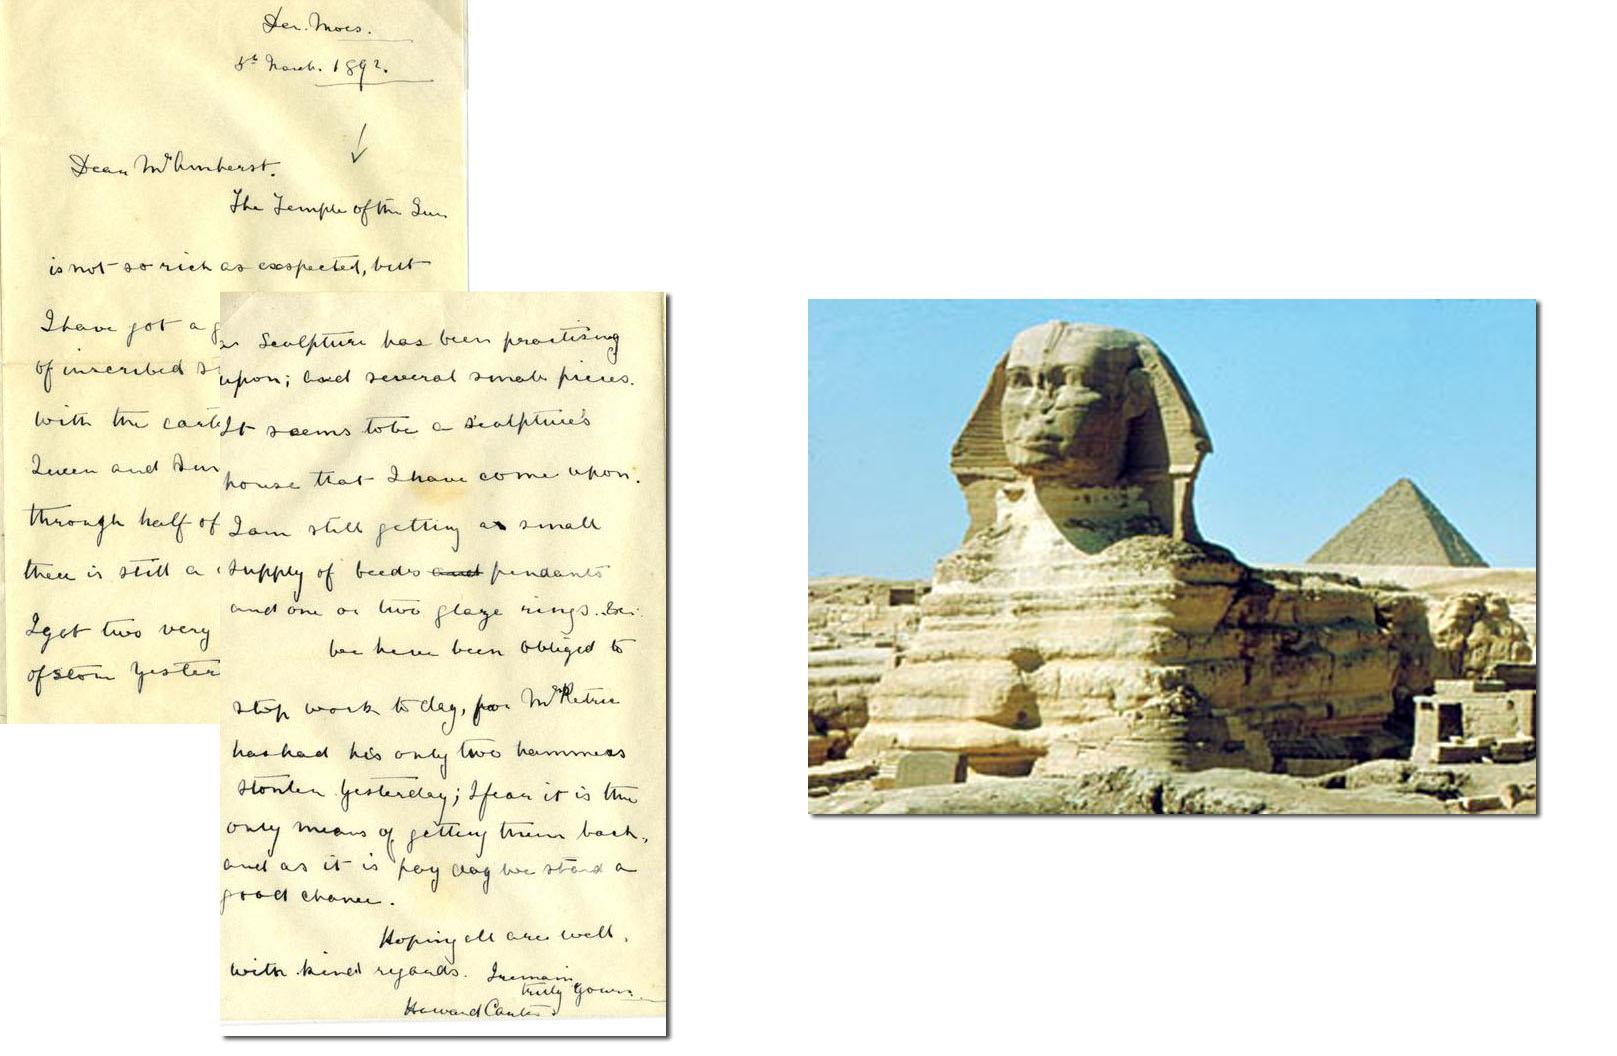 Der. Moes.
5th March. 1892.
Dear Mr Amherst.
The Temple of the Sun
is not so rich as exspected, but
I have got a g
of inscribed st
with the carto
Queen and Sun
through half of
there is still a
I got two very
of stone yester
as Sculpture has been practising
upon; and several small pieces.
It seems to be a sculpture's
house that I have come upon.
I am still getting a small
supply of beeds and pendants
and one or two glaze rings.
We have been obliged to
stop work to day, for Mr Petrie
has had his only two hammers
stonlen yesterday; I fear it is the
only means of getting them back,
and as it is pay day we stand a
good chance.
Hoping all are well,
with kind regards. I remain
truly yours
Howard Carter